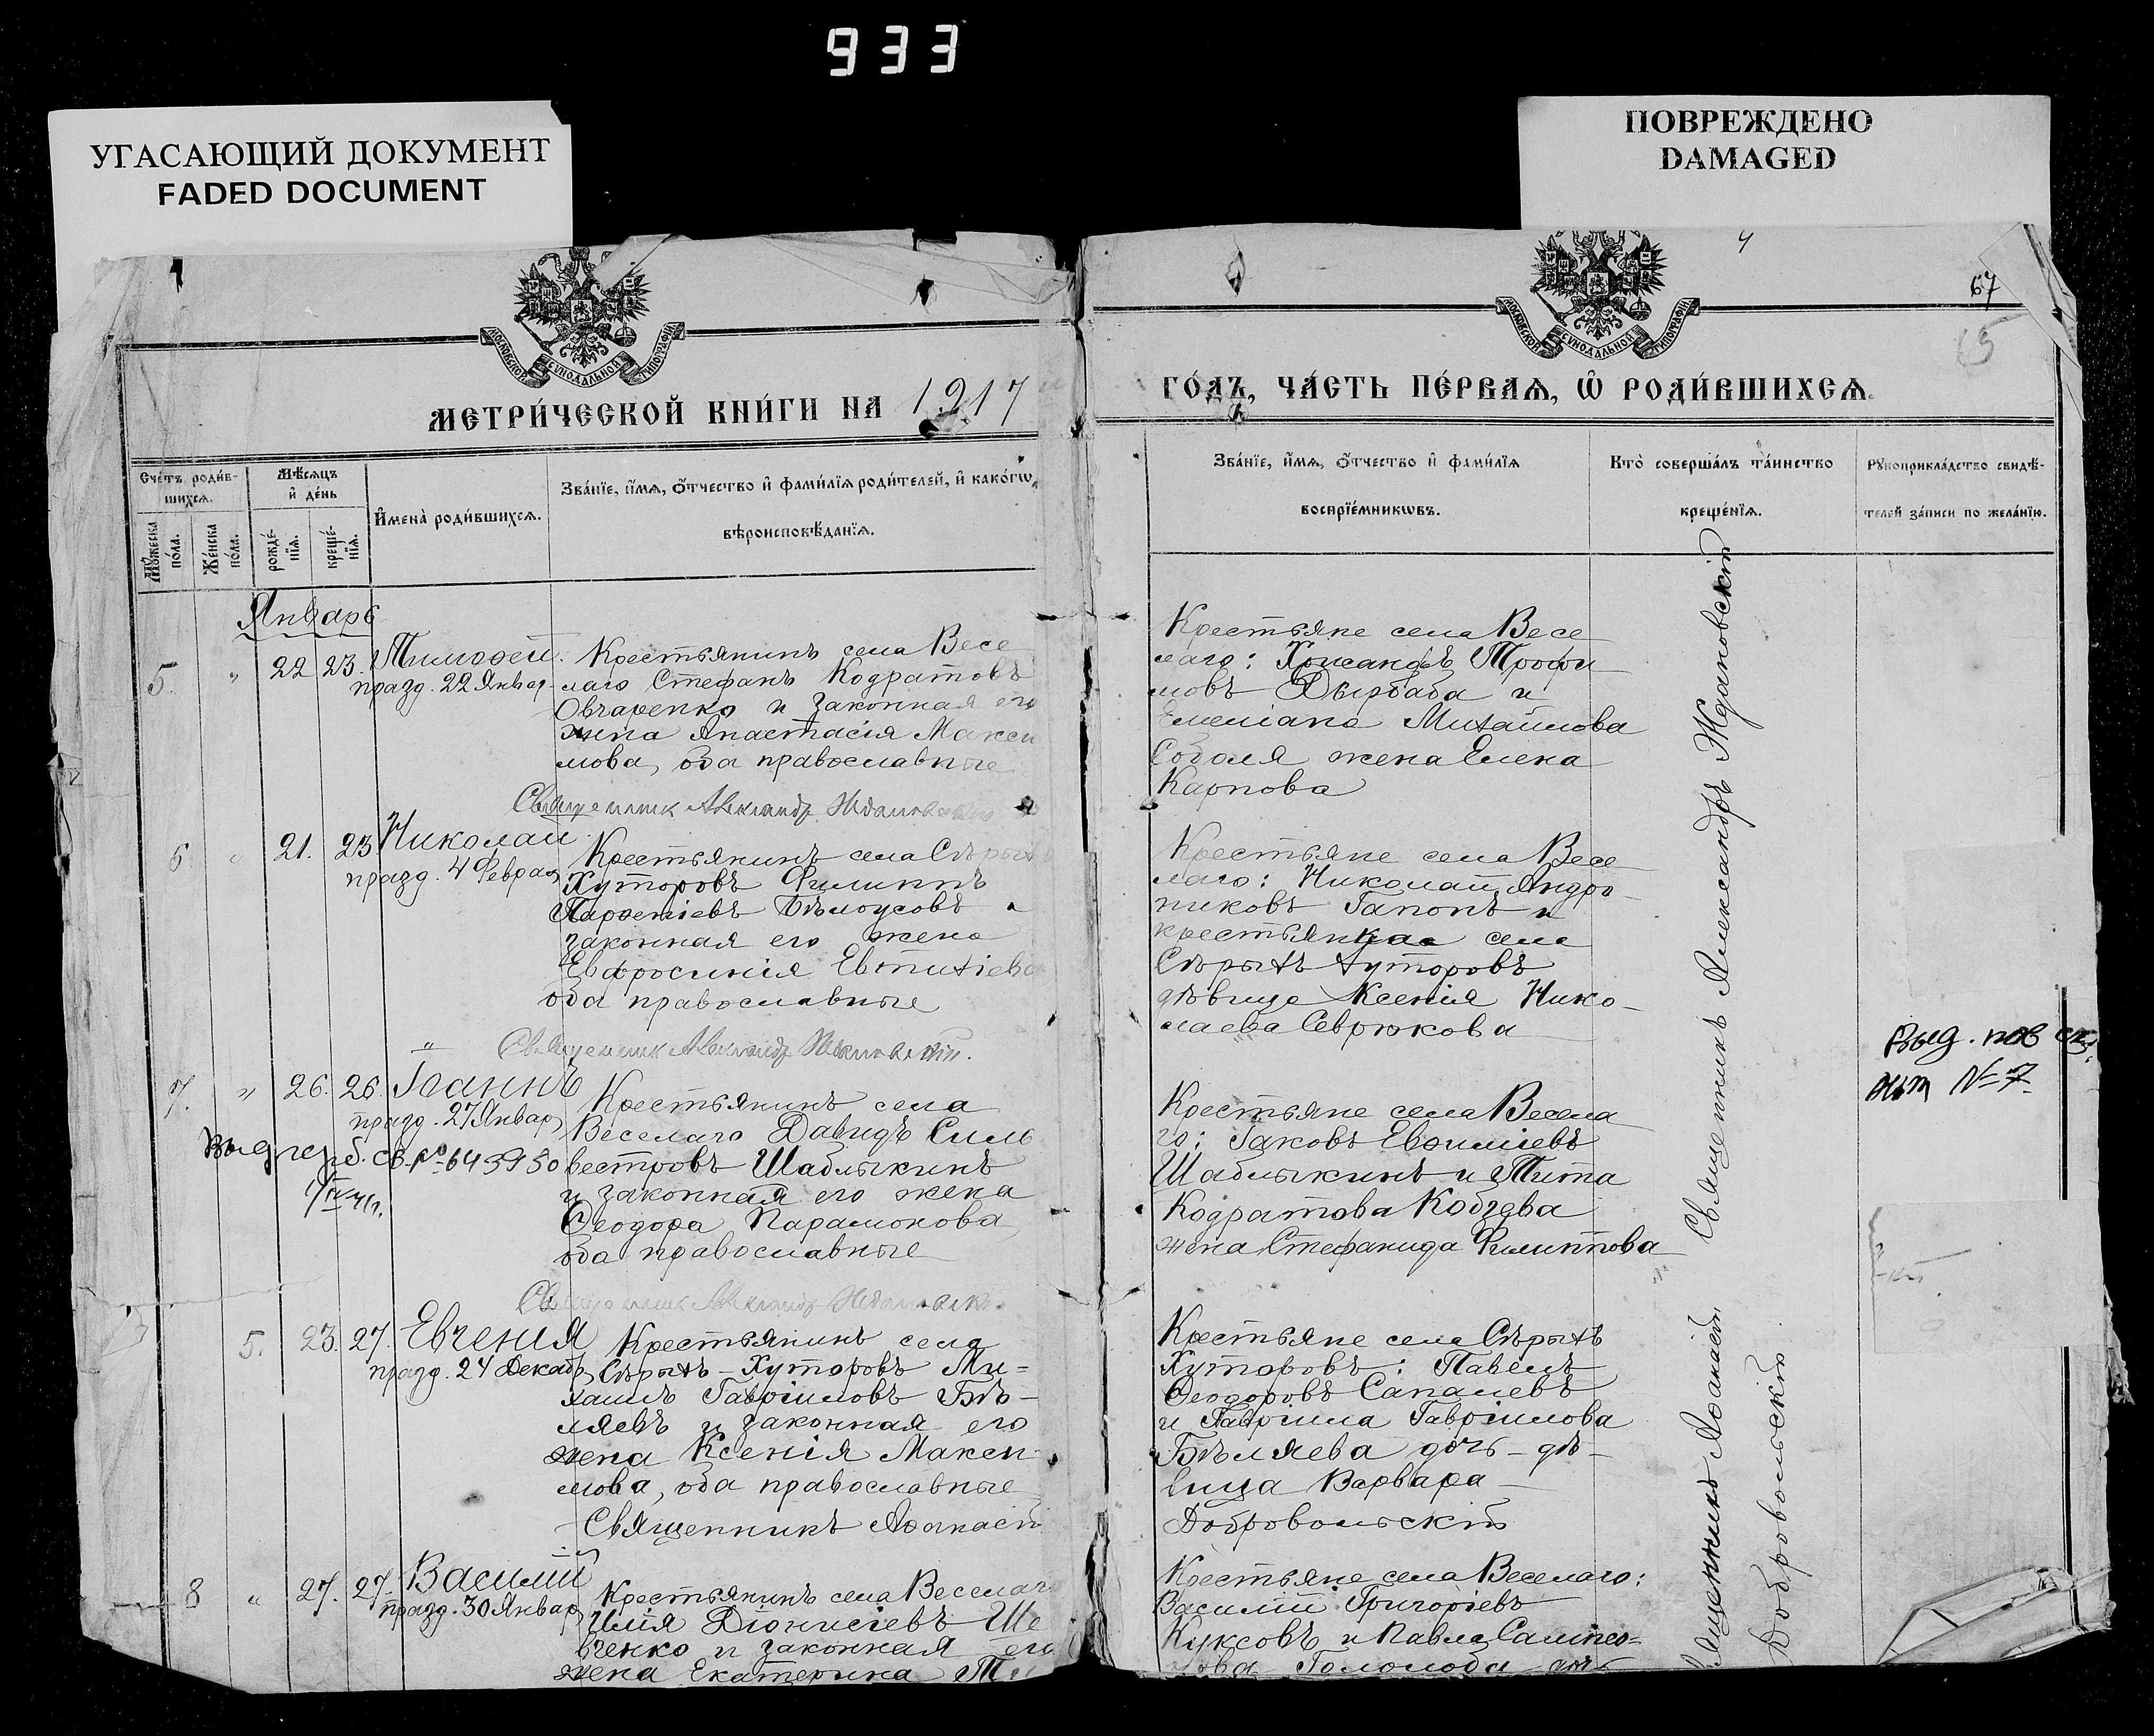 933
УГАСАЮЩИЙ ДОКУМЕНТ
FADED DOCUMENT
ПОВРЕЖДЕНО
DAMAGED
4
67
15
МОСКОВСКОЙ СѴНОДАЛЬНОЙ ТИПОГРАФІИ
МОСКОВСКОЙ СѴНОДАЛЬНОЙ ТИПОГРАФІИ
МЕТРИ́ЧЕСКОЙ КНИ́ГИ НА 1917
ГО́ДЪ, ЧА́СТЬ ПЕ́РВАѦ, Ѡ҆ РОДИ́ВШИХСѦ.
Сче́тъ роди́в-
шихсѧ.
Мꙋ́жеска по́ла.
Же́нска по́ла.
Мѣ́сѧцъ
и҆ де́нь
рожде́-
нїѧ.
креще́-
нїѧ.
И҆мена̀ роди́вшихсѧ.
Зва́нїе, и҆́мѧ, ѻ҆́тчество и҆ фами́лїѧ роди́телей, и҆ како́гѡ
вѣроисповѣ́данїѧ.
Зва́нїе, и҆́мѧ, ѻ҆́тчество и҆ фами́лїѧ
воспрїе́мникѡвъ.
Кто̀ соверша́лъ та́инство
креще́нїѧ.
Рꙋкоприкла́дство свидѣ́-
телей за́писи по жела́нїю.
Январь
5. " 22 23. Тимоѳей.
празд. 22 Январ.
Крестьянинъ села Весе
лаго Стефанъ Кодратовъ
Овчаренко и законная его
жена Анастасія Макси
мова, оба православные
Священник Александр Ждановский
Крестьяне села Весе
лаго: Хрисанфъ Трофи
мовъ Дырбаба и
Емеліана Михайлова
Соболя жена Елена
Карпова
6. " 21. 23 Николай
празд. 4 Феврал
Крестьянинъ села Сѣрыхъ
Хуторовъ Филиппъ
Парѳеніевъ Бѣлоусовъ и
законная его жена
Евфросинія Евтихіева
оба православные
Священник Александр Ждановский.
Крестьяне села Весе
лаго: Николай Андро-
никовъ Гапонъ и
крестьянка села
Сѣрыхъ Хуторовъ
дѣвица Ксенія Нико-
лаева Севрюкова
7. " 26. 26. Іоаннъ
празд. 27 Январ
Выд
св. № 643930
Крестьянинъ села
Веселаго Давидъ Силь
вестровъ Шаблыкинъ
и законная его жена
Ѳеодора Парамонова
оба православные
Священник Александр Ждановский
Крестьяне села Весела
го: Іаковъ Евѳиміевъ
Шаблыкинъ и Тита
Кодратова Кобзева
жена Стефанида Филиппова
Выд. пов
№ 7
5. 23. 27. Евгенія
празд. 24 Декабр
Крестьянинъ села
Сѣрыхъ-Хуторовъ Ми=
хаилъ Гавріиловъ Бѣ-
ляевъ и законная его
жена Ксенія Макси-
мова, оба православные
Священникъ Аѳанасій
Крестьяне села Сѣрыхъ
Хуторовъ: Павелъ
Ѳеодоровъ Сапалевъ
и Гавріила Гавріилова
Бѣляева дочь-дѣ-
вица Варвара
Добровольскій
8 " 27. 27. Василій
празд. 30 Январ
Крестьянинъ села Веселаго
Илія Діонисіевъ Ше
вченко и законная его
жена Екатерина
Крестьяне села Веселаго:
Василій Григоріевъ
Куксовъ и Павла Сампсо=
нова Голомоба
Священникъ Александръ Ждановскій
Священникъ Аѳанасій
Добровольскій